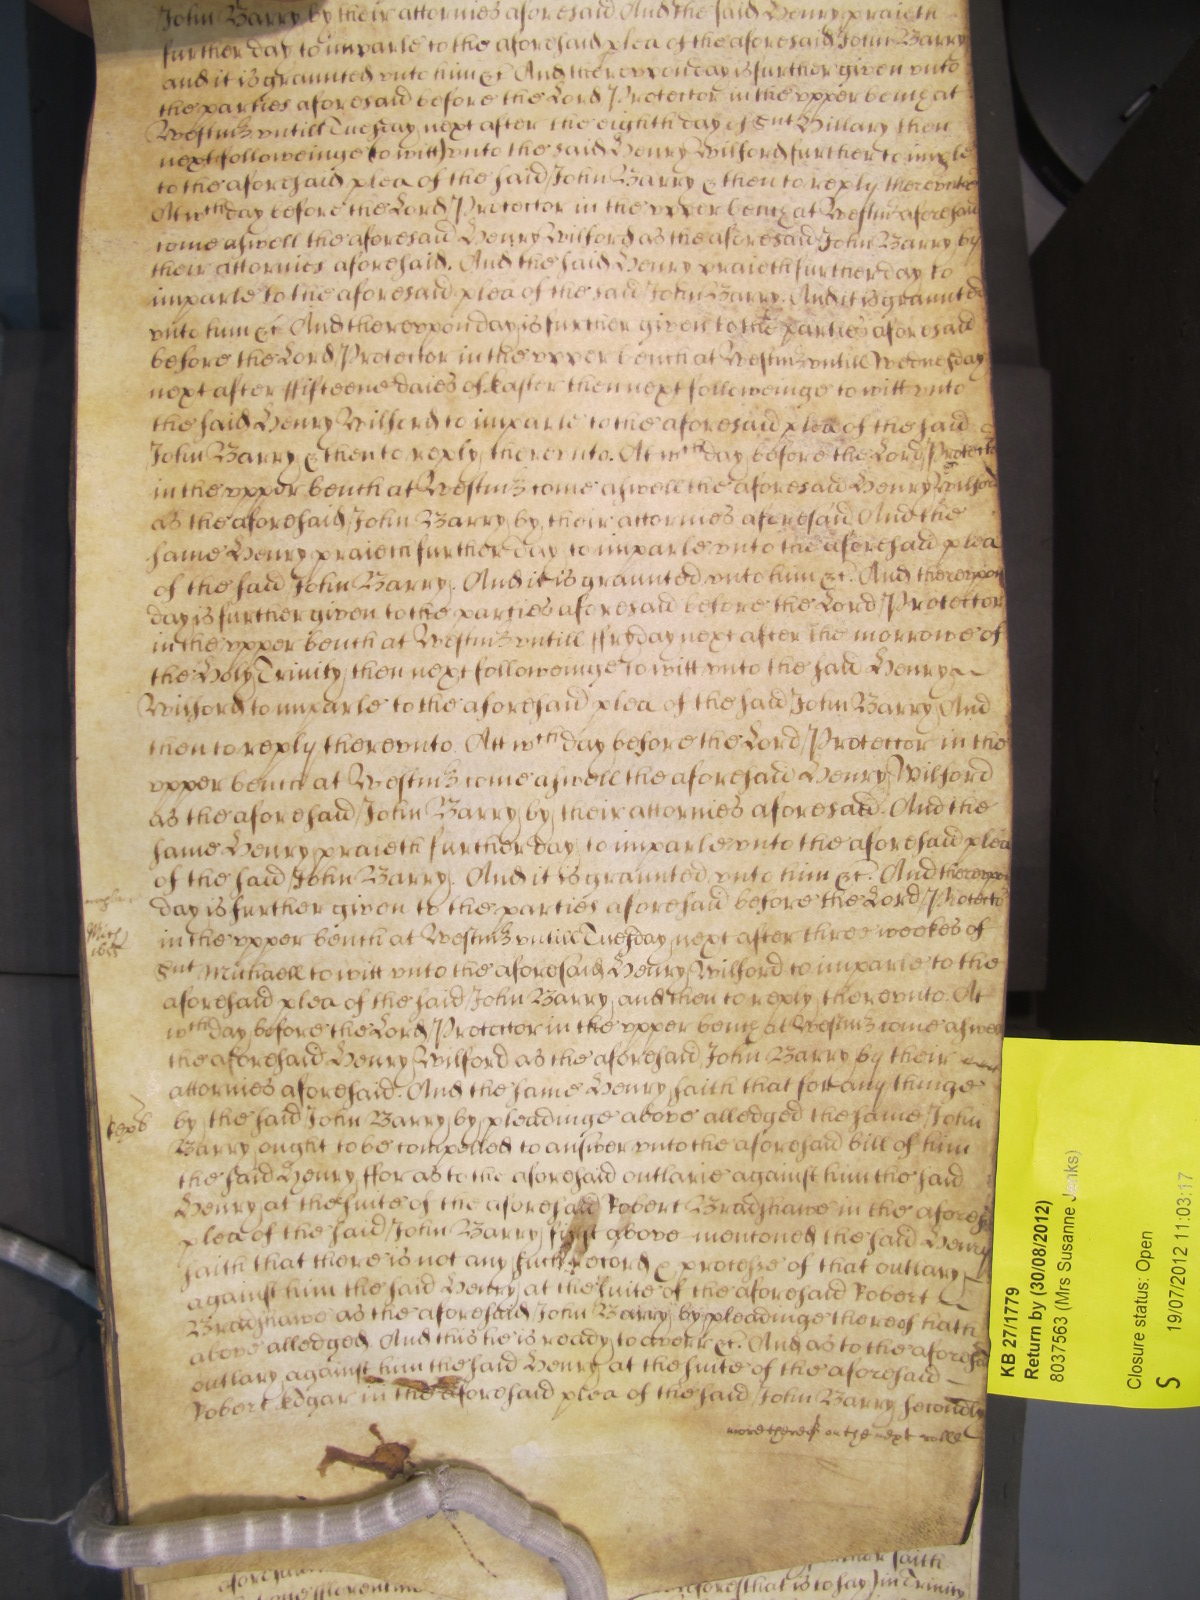 John Barry by their attornies aforesaid And the said Henry praieth
further day to imparle to the aforesaid plea of the aforesaid John Barry
and it is graunted vnto him &c And therevppon day is further given vnto
the parties aforesaid before the Lord Protector in the vpper bench at
Westmr vntill Tuesday next after the eighth day of Snt Hillary then
next followeinge (to witt) vnto the said Henry Wilford further to imple
to the aforesaid plea of the said John Barry & then to reply therevnto
At wch day before the Lord Protector in the vpper bench at Westmr aforesaid
come aswell the aforesaid Henry Wilford as the aforesaid John Barry by
their attornies aforesaid. And the said Henry praieth further day to
imparle to the aforesaid plea of the said John Barry. And it is graunted
vnto him &c And therevppon day is further given to the parties aforesaid
before the Lord Protector in the vpper bench at Westmr vntill Wednesday
next after ffifteene daies of Easter then next followeinge to witt vnto
the said Henry Wilford to imparle to the aforesaid plea of the said
John Barry & then to reply therevnto. At wch day before the Lord Protector
in the vpper bench at Westmr come aswell the aforesaid Henry Wilford
as the aforesaid John Barry by their attornies aforesaid And the
same Henry praieth further day to imparle vnto the aforesaid plea
of the said John Barry. And it is graunted vnto him &c. And therevppon
day is further given to the parties aforesaid before the Lord Protector
in the vpper bench at Westmr vntill ffryday next after the morrowe of
the Holy Trinity then next followeinge to witt vnto the said Henry
Wilford to imparle to the aforesaid plea of the said John Barry And
then to reply therevnto. Att wch day before the Lord Protector in the
vpper bench at Westmr come aswell the aforesaid Henry Wilford
as the aforesaid John Barry by their attornies aforesaid. And the
same Henry praieth further day to imparle vnto the aforesaid plea
of the said John Barry. And it is graunted vnto him &c. And therevppon
day is further given to the parties aforesaid before the Lord Protector
Mich
1655
in the vpper bench at Westmr vntill Tuesday next after three weekes of
Snt Michaell to witt vnto the aforesaid Henry Wilford to imparle to the
aforesaid plea of the said John Barry and then to reply therevnto. At
wch day before the Lord Protector in the vpper bench at Westmr come aswell
the aforesaid Henry Wilford as the aforesaid John Barry by their
attornies aforesaid. And the same Henry saith that for any thinge
by the said John Barry by pleadinge above alledged the same John
Barry ought to be compelled to answer vnto the aforesaid bill of him
the said Henry ffor as to the aforesaid outlarie against him the said
Henry at the suite of the aforesaid Robert Bradshawe in the aforesaid
plea of the said John Barry first above mentoned the said Henry
saith that there is not any such record & processe of that outlary
against him the said Henry at the suite of the aforesaid Robert
Bradshawe as the aforesaid John Barry by pleadinge thereof hath
above alledged And this he is ready to averr &c. And as to the aforesaid
outlary against him the said Henry at the suite of the aforesaid
Robert Edgar in the aforesaid plea of the said John Barry secondly
more thereof on the next rolle
KB 27/1779
Return by (30/08/2012)
8037563 (Mrs Susanne Jenks)
Closure status: Open
S 19/07/2012 11:03:17